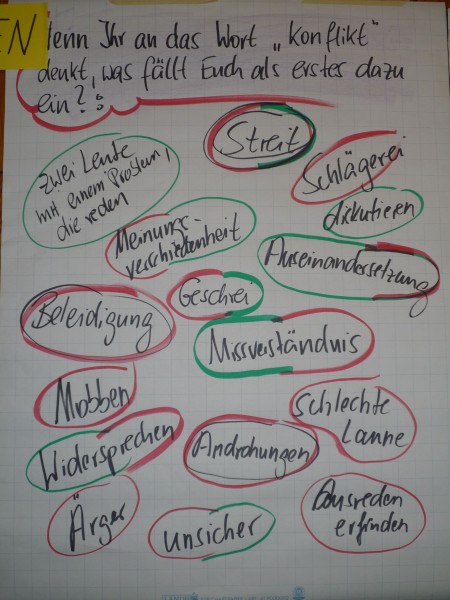 EN
Wenn Ihr an das Wort „Konflikt“
denkt, was fällt Euch als erstes dazu
ein?
Streit
Zwei Leute
mit einem Problem,
die reden
Schlägerei
diskutieren
Meinungs-
verschiedenheit
Auseinandersetzung
Geschrei
Beleidigung
Missverständnis
Mobben
Schlechte
Laune
Widersprechen
Androhungen
Ärger
unsicher
Ausreden
erfinden